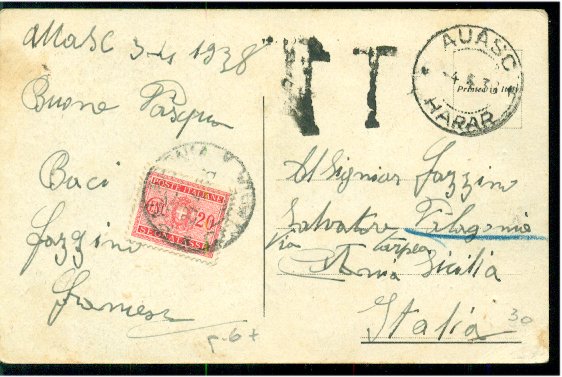 Auasc 3-4 1938
Buone Pasqua
Baci
Fazzino
POSTE ITALIANE
20
SEGNATASSE
T T
AUASC
HARAR
Printed in Italy
Al Signior Fazzino
Salvatore
Via
Sicilia
Italia
30